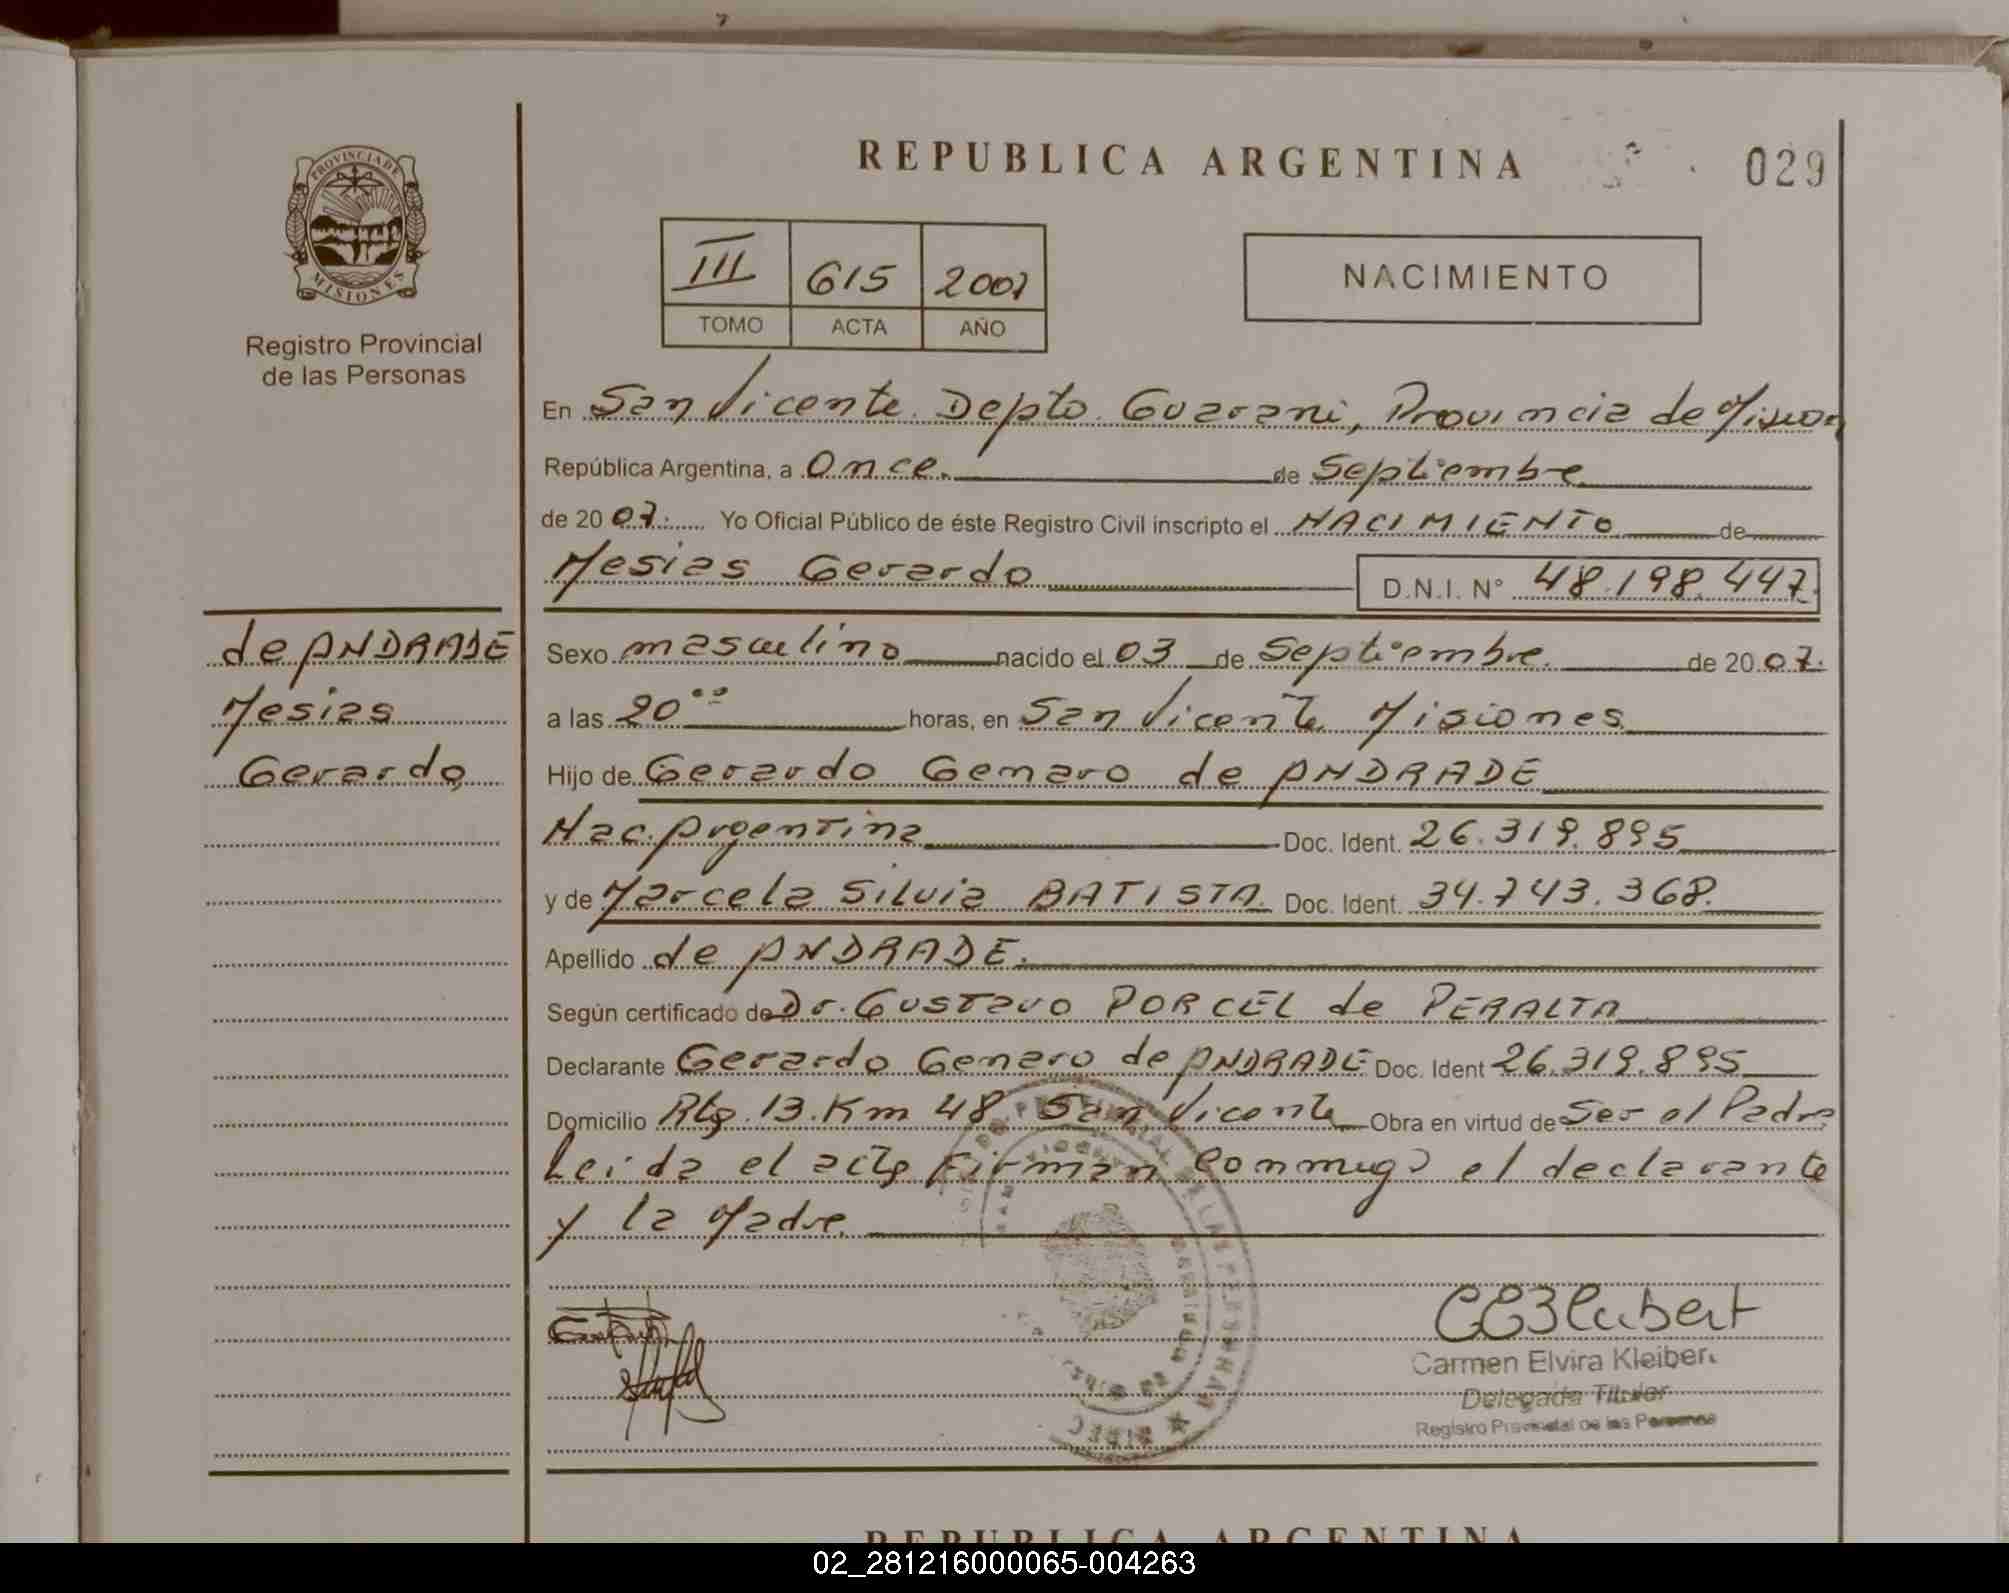 REPUBLICA ARGENTINA
029
PROVINCIA DE
MISIONES
Registro Provincial
de las Personas
III 615 2007
TOMO ACTA AÑO
NACIMIENTO
En San Vicente. Depto. Guarani, Provincia de Mision
República Argentina, a Once. de Septiembre
de 20 07. Yo Oficial Público de éste Registro Civil inscripto el NACIMIENTO de
Mesias Gerardo D.N.I. N° 48.198.447.
de ANDRADE
Mesias
Gerardo
Sexo masculino nacido el 03 de Septiembre. de 20 07.
a las 20 00 horas, en San Vicente Misiones
Hijo de Gerardo Genaro de ANDRADE
Nac. Argentina Doc. Ident. 26.319.895
y de Marcela Silvia BATISTA. Doc. Ident. 34.743.368.
Apellido de ANDRADE.
Según certificado de Dr. Gustavo PORCEL de PERALTA
Declarante Gerardo Genaro de ANDRADE Doc. Ident 26.319.895
Domicilio Rta. 13. Km 48. San Vicente Obra en virtud de Ser el Padre
Leida el acta firman Conmigo el declarante
y la Madre.
Carmen Elvira Kleiber
Delegada Titular
Registro Provincial de las Personas
REPUBLICA ARGENTINA
02_281216000065-004263